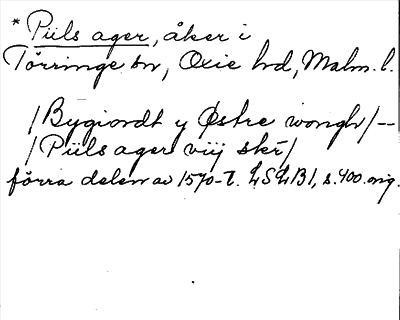 * Piils ager, åker i
Törringe sn, Oxie hd, Malm. l.
/Bygiordt y Østre wongh/--
/Piils ager viij sker/
förra delen av 1570-t. LSLB1, s. 400. orig.